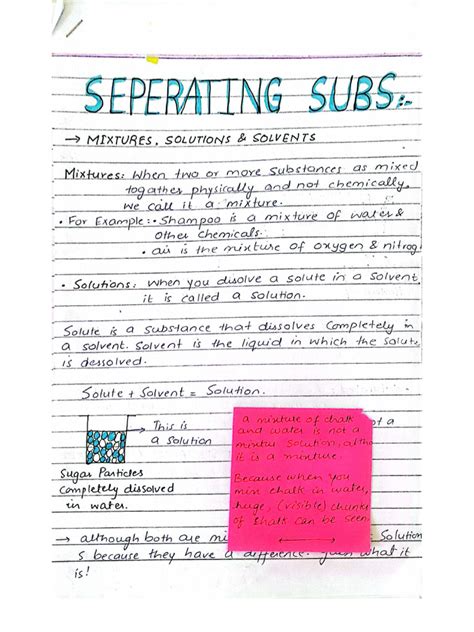 SEPERATING SUBS:-
→ MIXTURES, SOLUTIONS & SOLVENTS
Mixtures: When two or more substances as mixed
togather physically and not chemically,
we call it a mixture.
• For Example: • Shampoo is a mixture of water &
other chemicals.
• air is the mixture of oxygen & nitrog
• Solutions: When you disolve a solute in a solvent,
it is called a solution.
Solute is a substance that dissolves completely in
a solvent. Solvent is the liquid in which the solute
is dessolved.
Solute + Solvent = Solution.
→ This is
a solution
Sugar Particles
completely dissolved
in water.
a mixture of chalk
and water is not a
solution, altho
it is a mixture.
Because when you
mix chalk in water,
huge, (visible) chunks
of chalk can be seen.
→ although both are mi
Solution
S because they have a difference. what it
is!